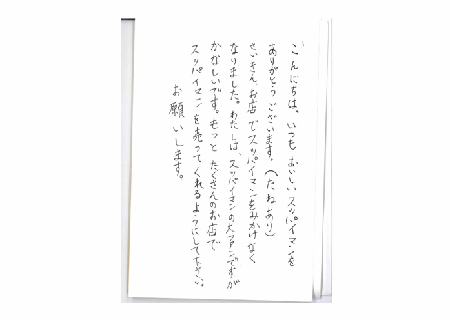 こんにちは、いつもおいしいスッパイマンを
ありがとうございます。(たねあり)
さいきん、お店でスッパイマンをみかけなく
なりました。わたしは、スッパイマンの大ファンですが
かなしいです。もっとたくさんのお店で
スッパイマンを売ってくれるようにして下さい。
お願いします。